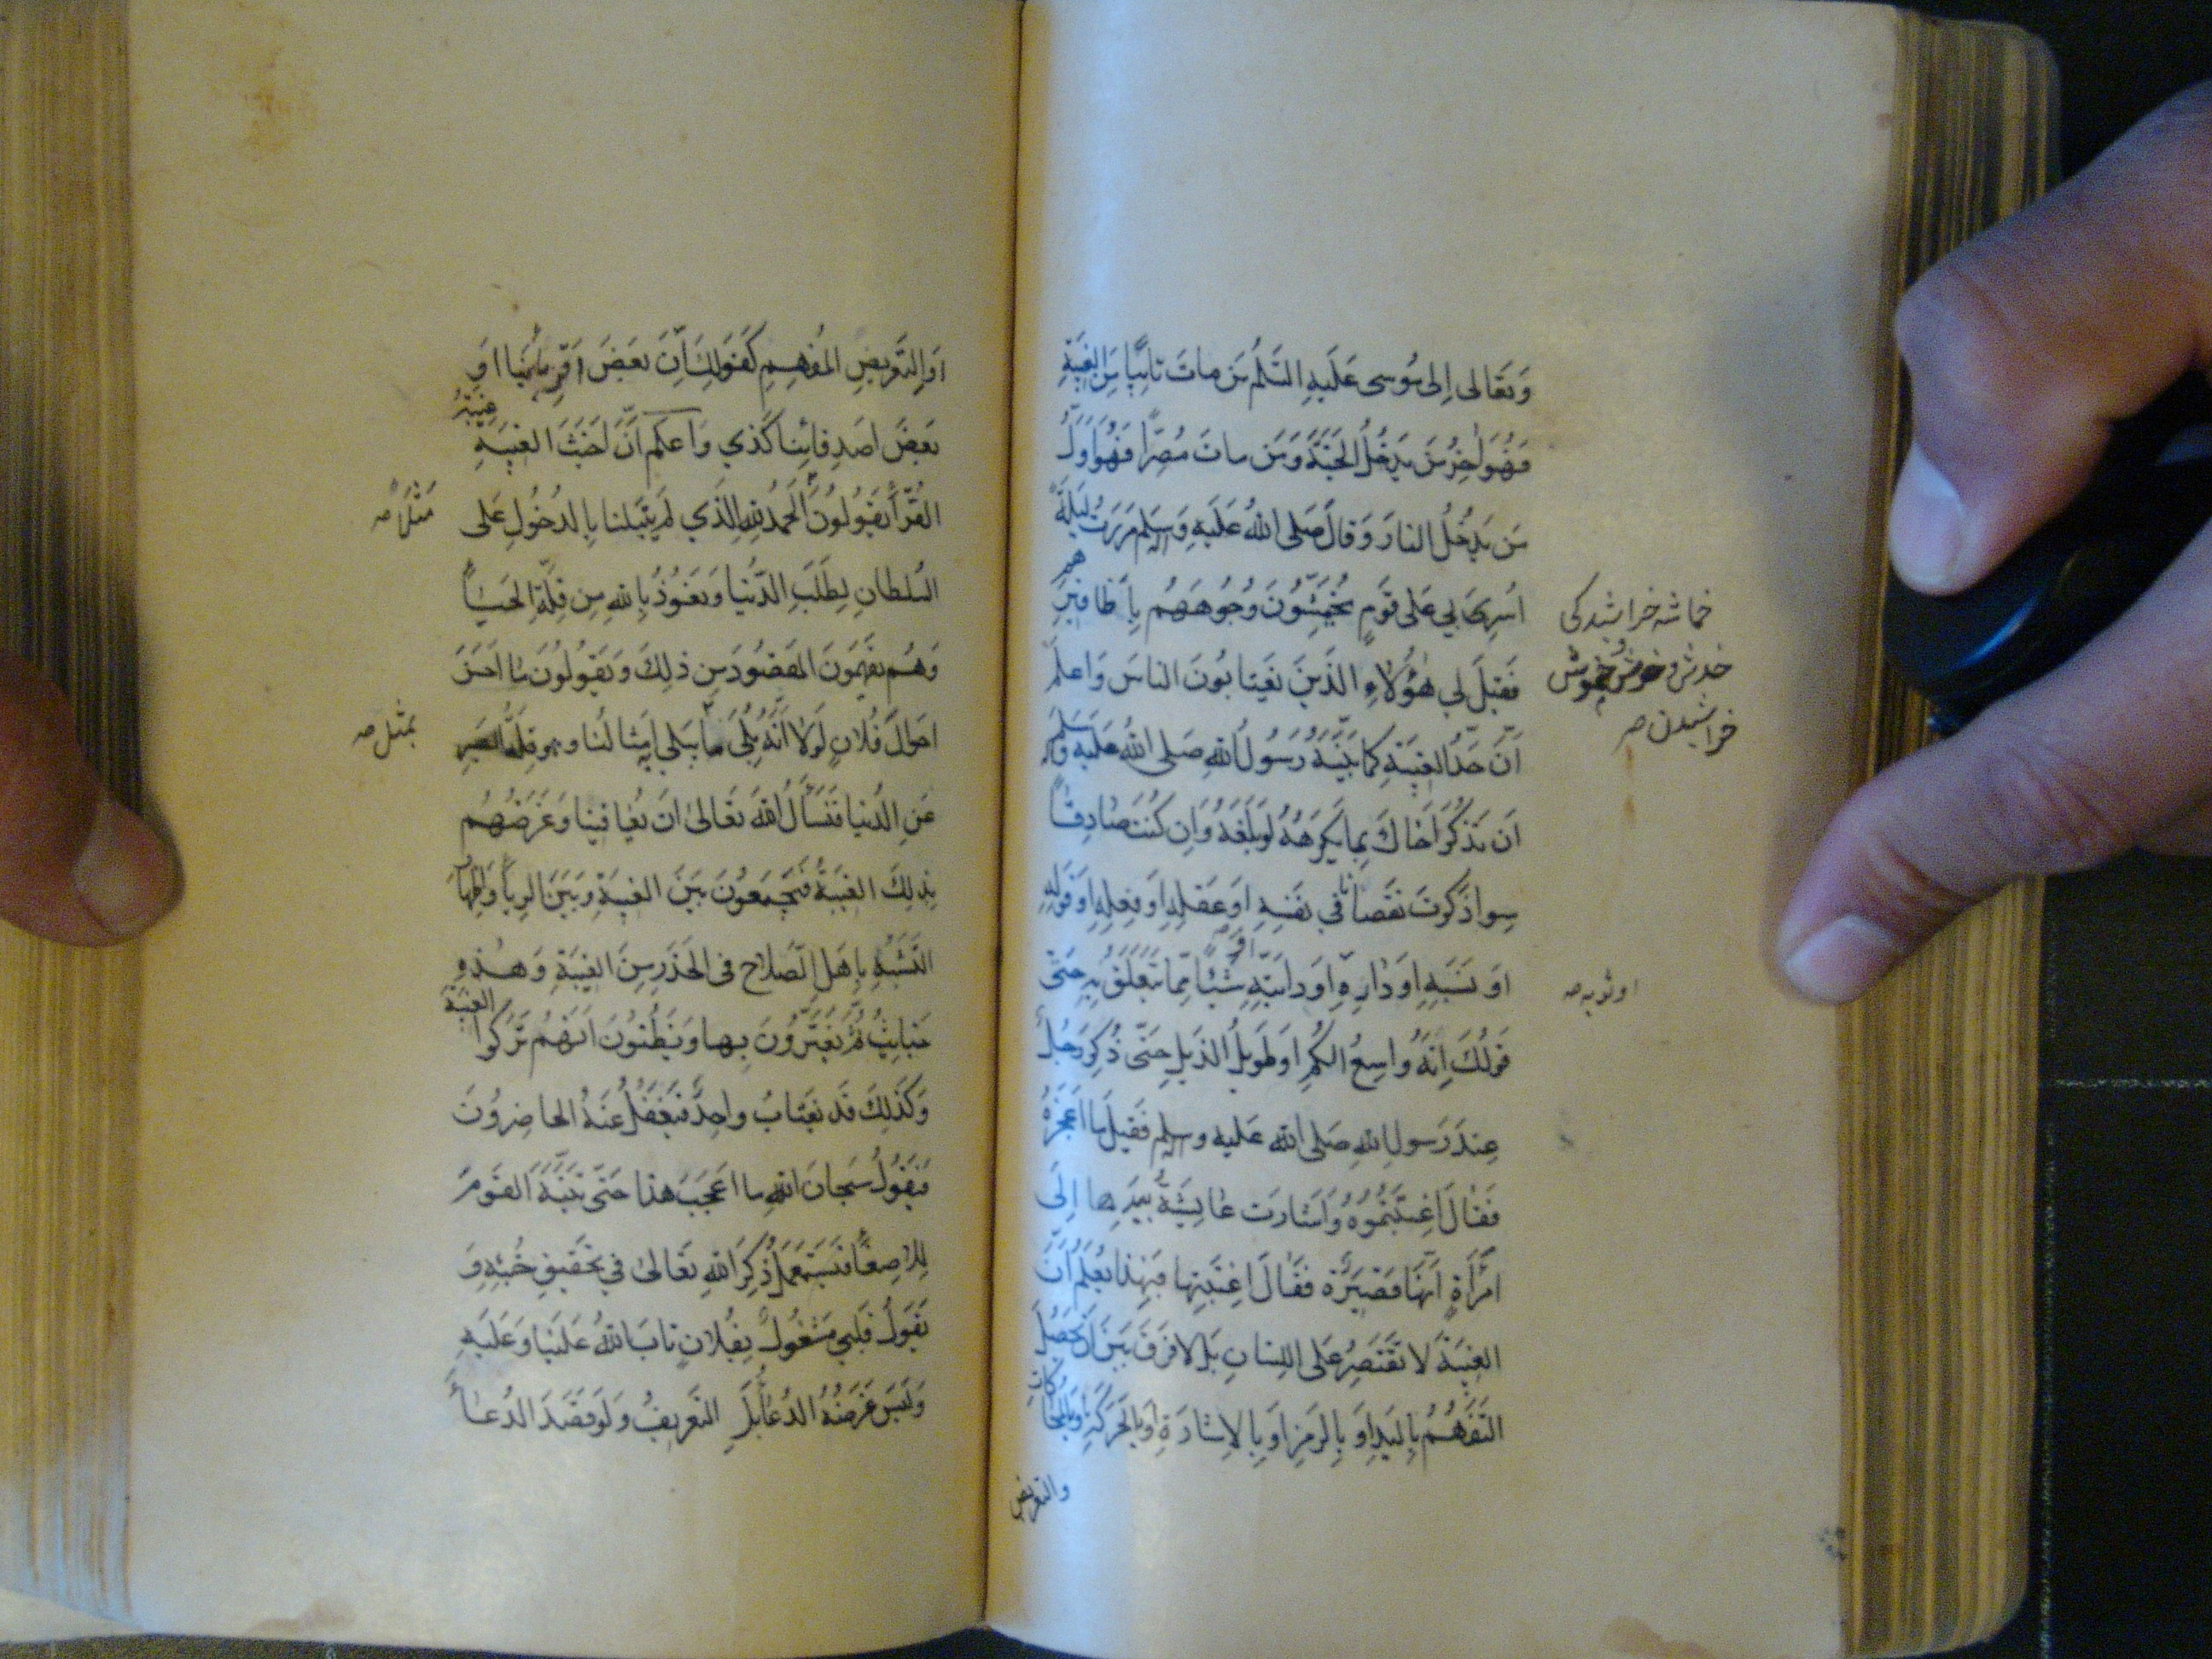 وَتَعَالى اِلى مُوسى عَلَيهِ السَّلَم مَن ماتَ تائِبًا مِنَ الغِيبَةِ
فَهُوَ اٰخِرُ مَن يَدخُلُ الجَنَّةَ وَمَن ماتَ مُصِرًّا فَهُوَ اَوَّلُ
مَن يَدخُلُ النارَ وَقالَ صَلى اللهُ عَلَيهِ وَآله وَسَلم مَرَرتُ لَيلَةً
اُسرِىَ بي عَلى قَومٍ يَخمِشُونَ وُجُوهَهُم بِاَظافِيرِهم
فَقيلَ لي هٰؤُلاءِ الَّذينَ يَغتابُونَ الناسَ وَاعلَم
اَنَّ حَدَّ الغِيبَةِ كَما بَيَّنَهُ رَسُولُ اللهِ صَلى اللهُ عَليهِ وَآله وسلم
اَن تَذكُرَ اَخاكَ بِما يَكرَهُهُ لَو بَلَغَهُ وَاِن كُنتَ صادِقًا
سِوا ذَكَرتَ نَقصَانا في نَفسِهِ اَو عَقلِهِ اَو فِعلِهِ اَو قَولِهِ
اَو نَسَبِهِ اَو دارِهِ اَو دابَّتِهِ اَو شَيئًا مِمّا يَتَعَلَّقُ بِهِ حَتّى
قَولُكَ اِنَّهُ واسِعُ الكُمِ اَو طَويلُ الذَيلِ حَتّى ذُكِرَ رَجُلٌ
عِندَ رَسولِ اللهِ صَلى اللهُ عَليه وآله وسلم فَقيلَ ما اَعجَزَهُ
فَقالَ اغتَبتُمُوهُ وَاَشارَت عائِشَةُ بِيَدِها اِلَى
امرَأَةٍ اَنَّها قَصيرَة فَقالَ اغتَبتِها فَبِهٰذا يُعلَمُ اَنَّ
الغِيبَةَ لا تَقتَصِرُ عَلَى اللِسانِ بَل لا فَرقَ بَينَ اَن يَحصُلَ
التَفَهُّمُ بِاليَدِ اَو بِالرَمزِ اَو بِالاِشارَةِ اَو بِالحَرَكَةِ اَو بِالمُحاكاتِ
والتعريض
خماشه خراشيدگى
خدش و خموش
خراشيدن صه
او ثوبه صه
اَو التَّعريضِ المُفهِمِ كَقَولِكَ اَنَّ بَعضَ اَقرِبائِنا اَو
بَعضَ اَصدِقائِنا كَذي وَاعلَم اَنَّ اَخبَثَ الغِيبَةِ غِيبَةُ
القُرّاءِ يَقُولُونَ الحَمدُ لِلهِ الَّذي لَم يَبتَلِنا بِالدُخُولِ عَلى
السُلطانِ لِطَلَبِ الدُّنيا وَنَعُوذُ بِاللهِ مِن قِلَّةِ الحَياءِ
وَهُم يُفهِمُونَ المَقصُودَ مِن ذلِكَ وَيَقُولُونَ ما اَحسَنَ
اَحوالَ فُلانٍ لَولا اَنَّهُ بُلِيَ بما بُلِيَ اَمثالُنا وهو قِلَّةُ الصَبرِ
عَنِ الدُّنيا فَنَسأَلُ اللهَ تَعَالىٰ اَن يُعافِيَنا وَغَرَضُهُم
بِذلِكَ الغيبَةُ فَيَجمَعُونَ بَينَ الغيبَةِ وَبَينَ الرِياءِ وَاِظهارِ
التَشَبُّهِ بِاَهلِ الصَّلاحِ فى الحَذَرِ مِنَ الغِيبَةِ وَهذِهِ
خَبائِثُ هُم يَغتَرُّونَ بِها وَيَظُنُّونَ اَنَّهُم تَرَكُوا الغيبَةَ
وَكَذلِكَ قَد يُغتابُ واحِدٌ فَيَغفُلُ عَنهُ الحاضِرُونَ
فَيَقُولُ سُبحانَ اللهِ ما اَعجَبَ هذا حَتّى يَتَنَبَّهَ القَومُ
لِلاِصغاءِ فَيَستَعمِلُ ذِكرَ اللهِ تَعَالىٰ في تَحقيقِ خُبثِهِ وَ
يَقُولُ قَلبي مَشغُولٌ بِفُلانٍ تابَ اللهُ عَلَينا وَعَلَيهِ
وَلَيسَ غَرَضُهُ الدُعاءَ بَلِ التَعريفُ وَلَو قَصَدَ الدُعاءَ
مَثَلاً صه
بمثل صه